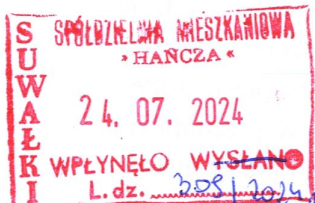 SUWAŁKI
SPÓŁDZIELNIA MIESZKANIOWA
» HAŃCZA «
24. 07. 2024
WPŁYNĘŁO WYSŁANO
L. dz. 308/2024